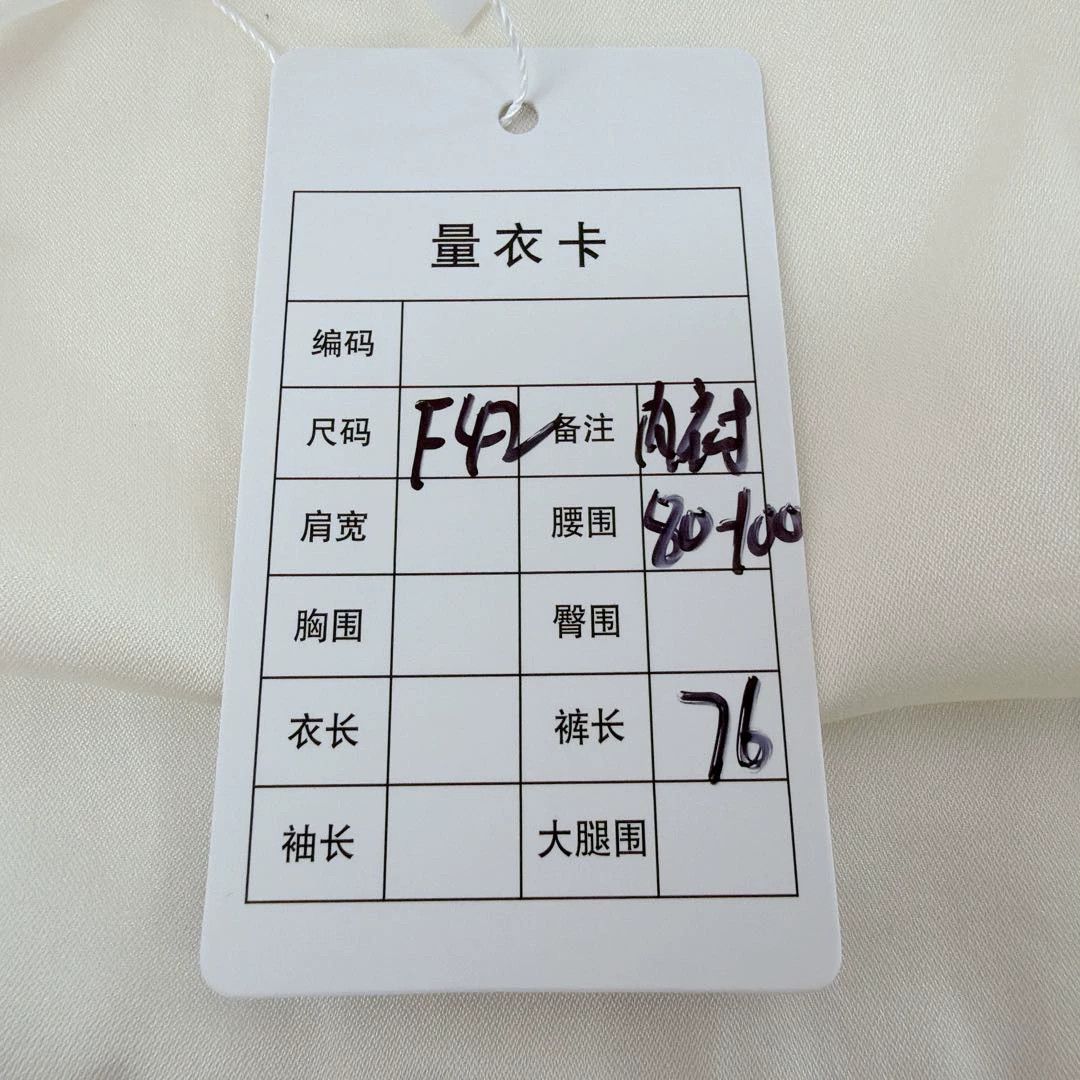 量衣卡
编码
尺码 F42 备注 内衬
肩宽 腰围 80-100
胸围 臀围
衣长 裤长 76
袖长 大腿围